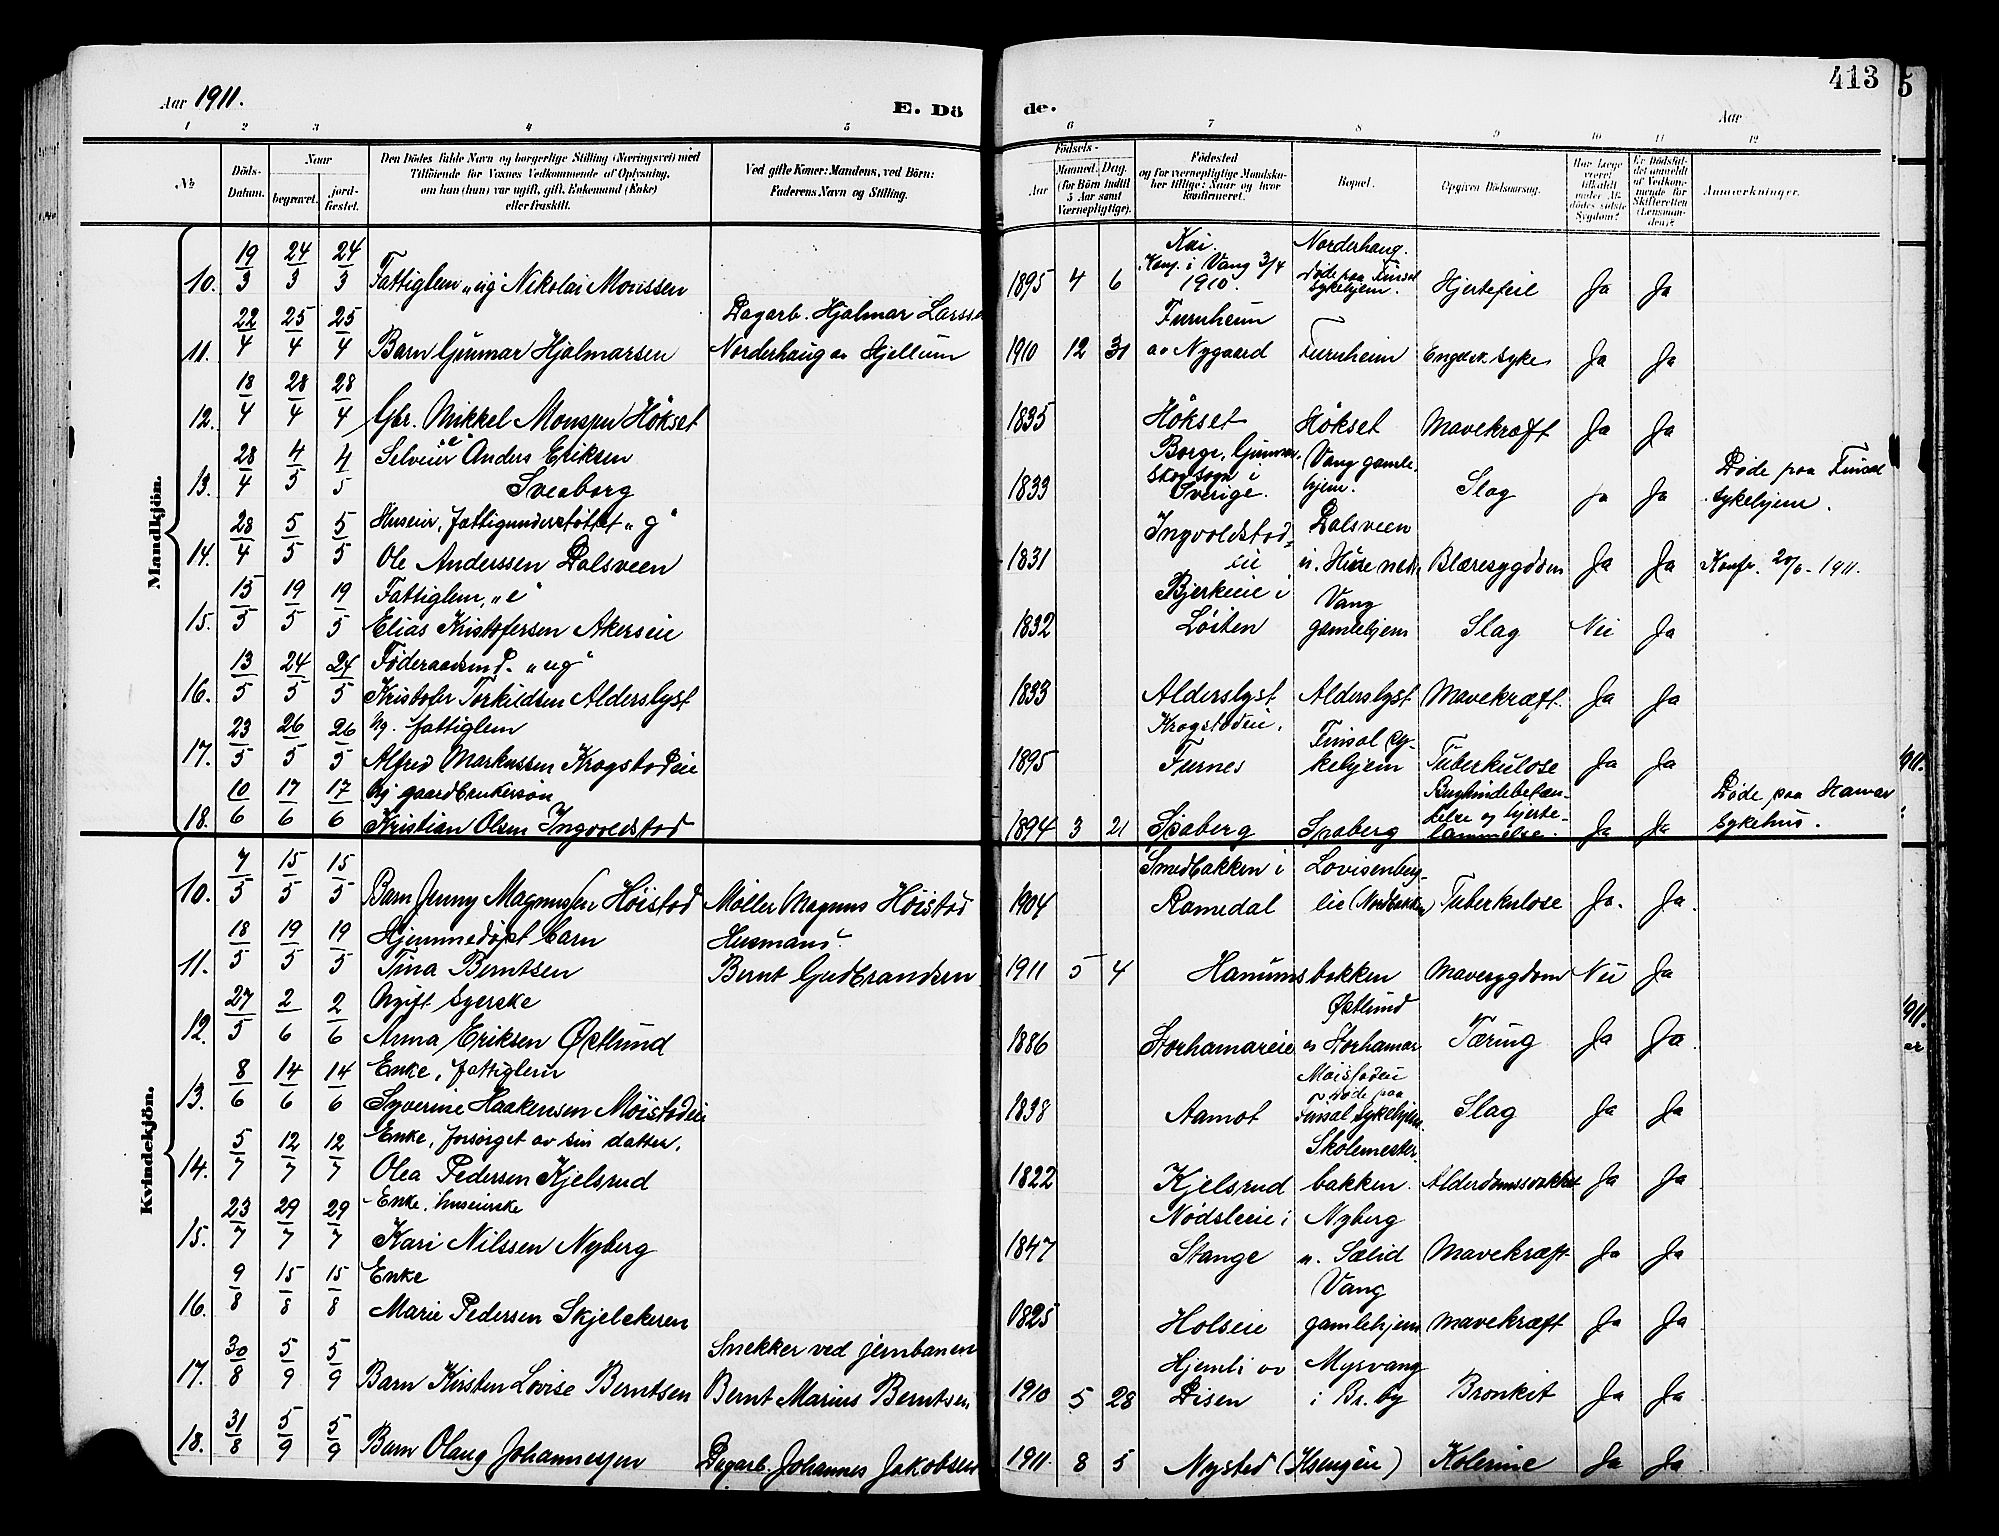 413
Aar 1911.
E. Dö
de.
Aar
1 2 3 4 5
6 7 8 9 10 11 12
№
Döds-Datum.
Naar
begravet.
jord-fæstet.
Den Dödes fulde Navn og borgerlige Stilling (Næringsvei) med
Tilföiende for Voxnes Vedkommende af Oplysning,
om han (hun) var ugift, gift, Enkemand (Enke)
eller fraskilt.
Ved gifte Koner: Mandens, ved Börn:
Faderens Navn og Stilling.
Födsels-
Aar
Maaned. Dag.
(for Börn indtil
5 Aar samt
Værnepligtige).
Födested
og for værnepligtige Mandskaber tillige: Naar og hvor
konfirmeret.
Bopæl.
Opgiven Dödsaarsag.
Har læge
været
tilkaldt
under Afdödes sidste
Sygdom?
Er Dödsfaldet anmeldt
af Vedkommende for
Skifteretten
(Lensmanden)?
Anmærkninger.
Mandkjön.
10. 19/3 24/3 24/3 Fattiglem „ug Nikolai Monssen 1895 4 6 Konf. i Vang 3/4 1910. Norderhaug. Døde paa Finsal sykehjem. Hjertefeil Ja Ja
11. 22/4 25/4 25/4 Barn Gunnar Hjalmarsen Dagarb. Hjalmar Larss Norderhaug av Hjellum 1910 12 31 Furuheim av Nygaard Furuheim Engelsk syke Ja Ja
12. 18/4 28/4 28/4 Gbr. Mikkel Monsen Høkset 1835 Høkset Høkset Mavekræft Ja Ja
13. 28/4 4/5 4/5 Selveier „e“ Anders Eriksen Sveaborg 1833 Borge, Gunnarskog sogn i Sverige. Vang gamlehjem. Slag Ja Ja Døde paa Finsal sykehjem.
14. 28/4 5/5 5/5 Huseier, fattigunderstøttet „g“ Ole Anderssen Dalsveen 1831 Ingvoldstadeie Dalsveen Blæresygdom Ja Ja 1911.
15. 15/5 19/5 19/5 Fattiglem, „e“ Elias Kristofersen Akerseie 1832 Bjerkeeie i Løiten Vang gamlehjem Slag Nei Ja
16. 13/5 24/5 24/5 Føderaadsmd. „ug“ Kristofer Torkildsen Alderslyst 1833 Alderslyst Alderslyst Mavekræft Ja Ja
17. 23/5 26/5 26/5 Ug. fattiglem Alfred Markussen Krogstadeie 1895 Krogstadeie, Furnes Finsal sykehjem Tuberkulose Ja Ja
18. 10/6 17/6 17/6 Ug gaardbrukersøn Kristian Olsen Ingvoldstad 1894 3 21 Spaberg Spaberg Bughindebetændelse og hjertelammelse. Ja Ja Døde paa Hamar sykehus.
Kvindekjön.
10. 7/5 15/5 15/5 Barn Jenny Magnussen Høistad Møller Magnus Høistad 1904 Smedbakken i Romedal Lovisenberglie (Nordbakken) Tuberkulose Ja. Ja.
11. 18/5 19/5 19/5 Hjemmedøpt barn Tina Berntsen Husmand Bernt Gudbrandsen 1911 5 4 Hanumsbakken Mavesygdom Nei Ja
12. 27/5 2/6 2/6 Ugift syerske Anna Eriksen Østlund 1886 Storhamareie Østlund av Storhamar Tæring Ja Ja.
13. 8/6 14/6 14/6 Enke, fattiglem Syverine Haakensen Møistadeie 1838 Aamot Møistadeie døde paa Finsal sykehjem. Slag Ja Ja
14. 5/7 12/7 12/7 Enke, forsørget av sin datter. Olea Pedersen Kjelsrud 1822 Kjelsrud Skolemesterbakken. Alderdomssvakhet Ja Ja
15. 23/7 29/7 29/7 Enke, huseierske Kari Nilssen Nyberg 1847 Nødsleeie i Stange Nyberg u. Sælid Mavekræft Ja Ja
16. 9/8 15/8 15/8 Enke Marie Pedersen Skjelekeren 1825 Holseie Vang gamlehjem Mavekræft Ja Ja
17. 30/8 5/9 5/9 Barn Kirsten Lovise Berntsen Snekker ved jernbanen Bernt Marius Berntsen 1910 5 28 Hjemli av Disen Mysvang i Br.by Bronkit Ja Ja
18. 31/8 5/9 5/9 Barn Olaug Johannesen Dagarb. Johannes Jakobsen 1911 8 5 Nysted (Ilsengen) Kolerine Ja Ja